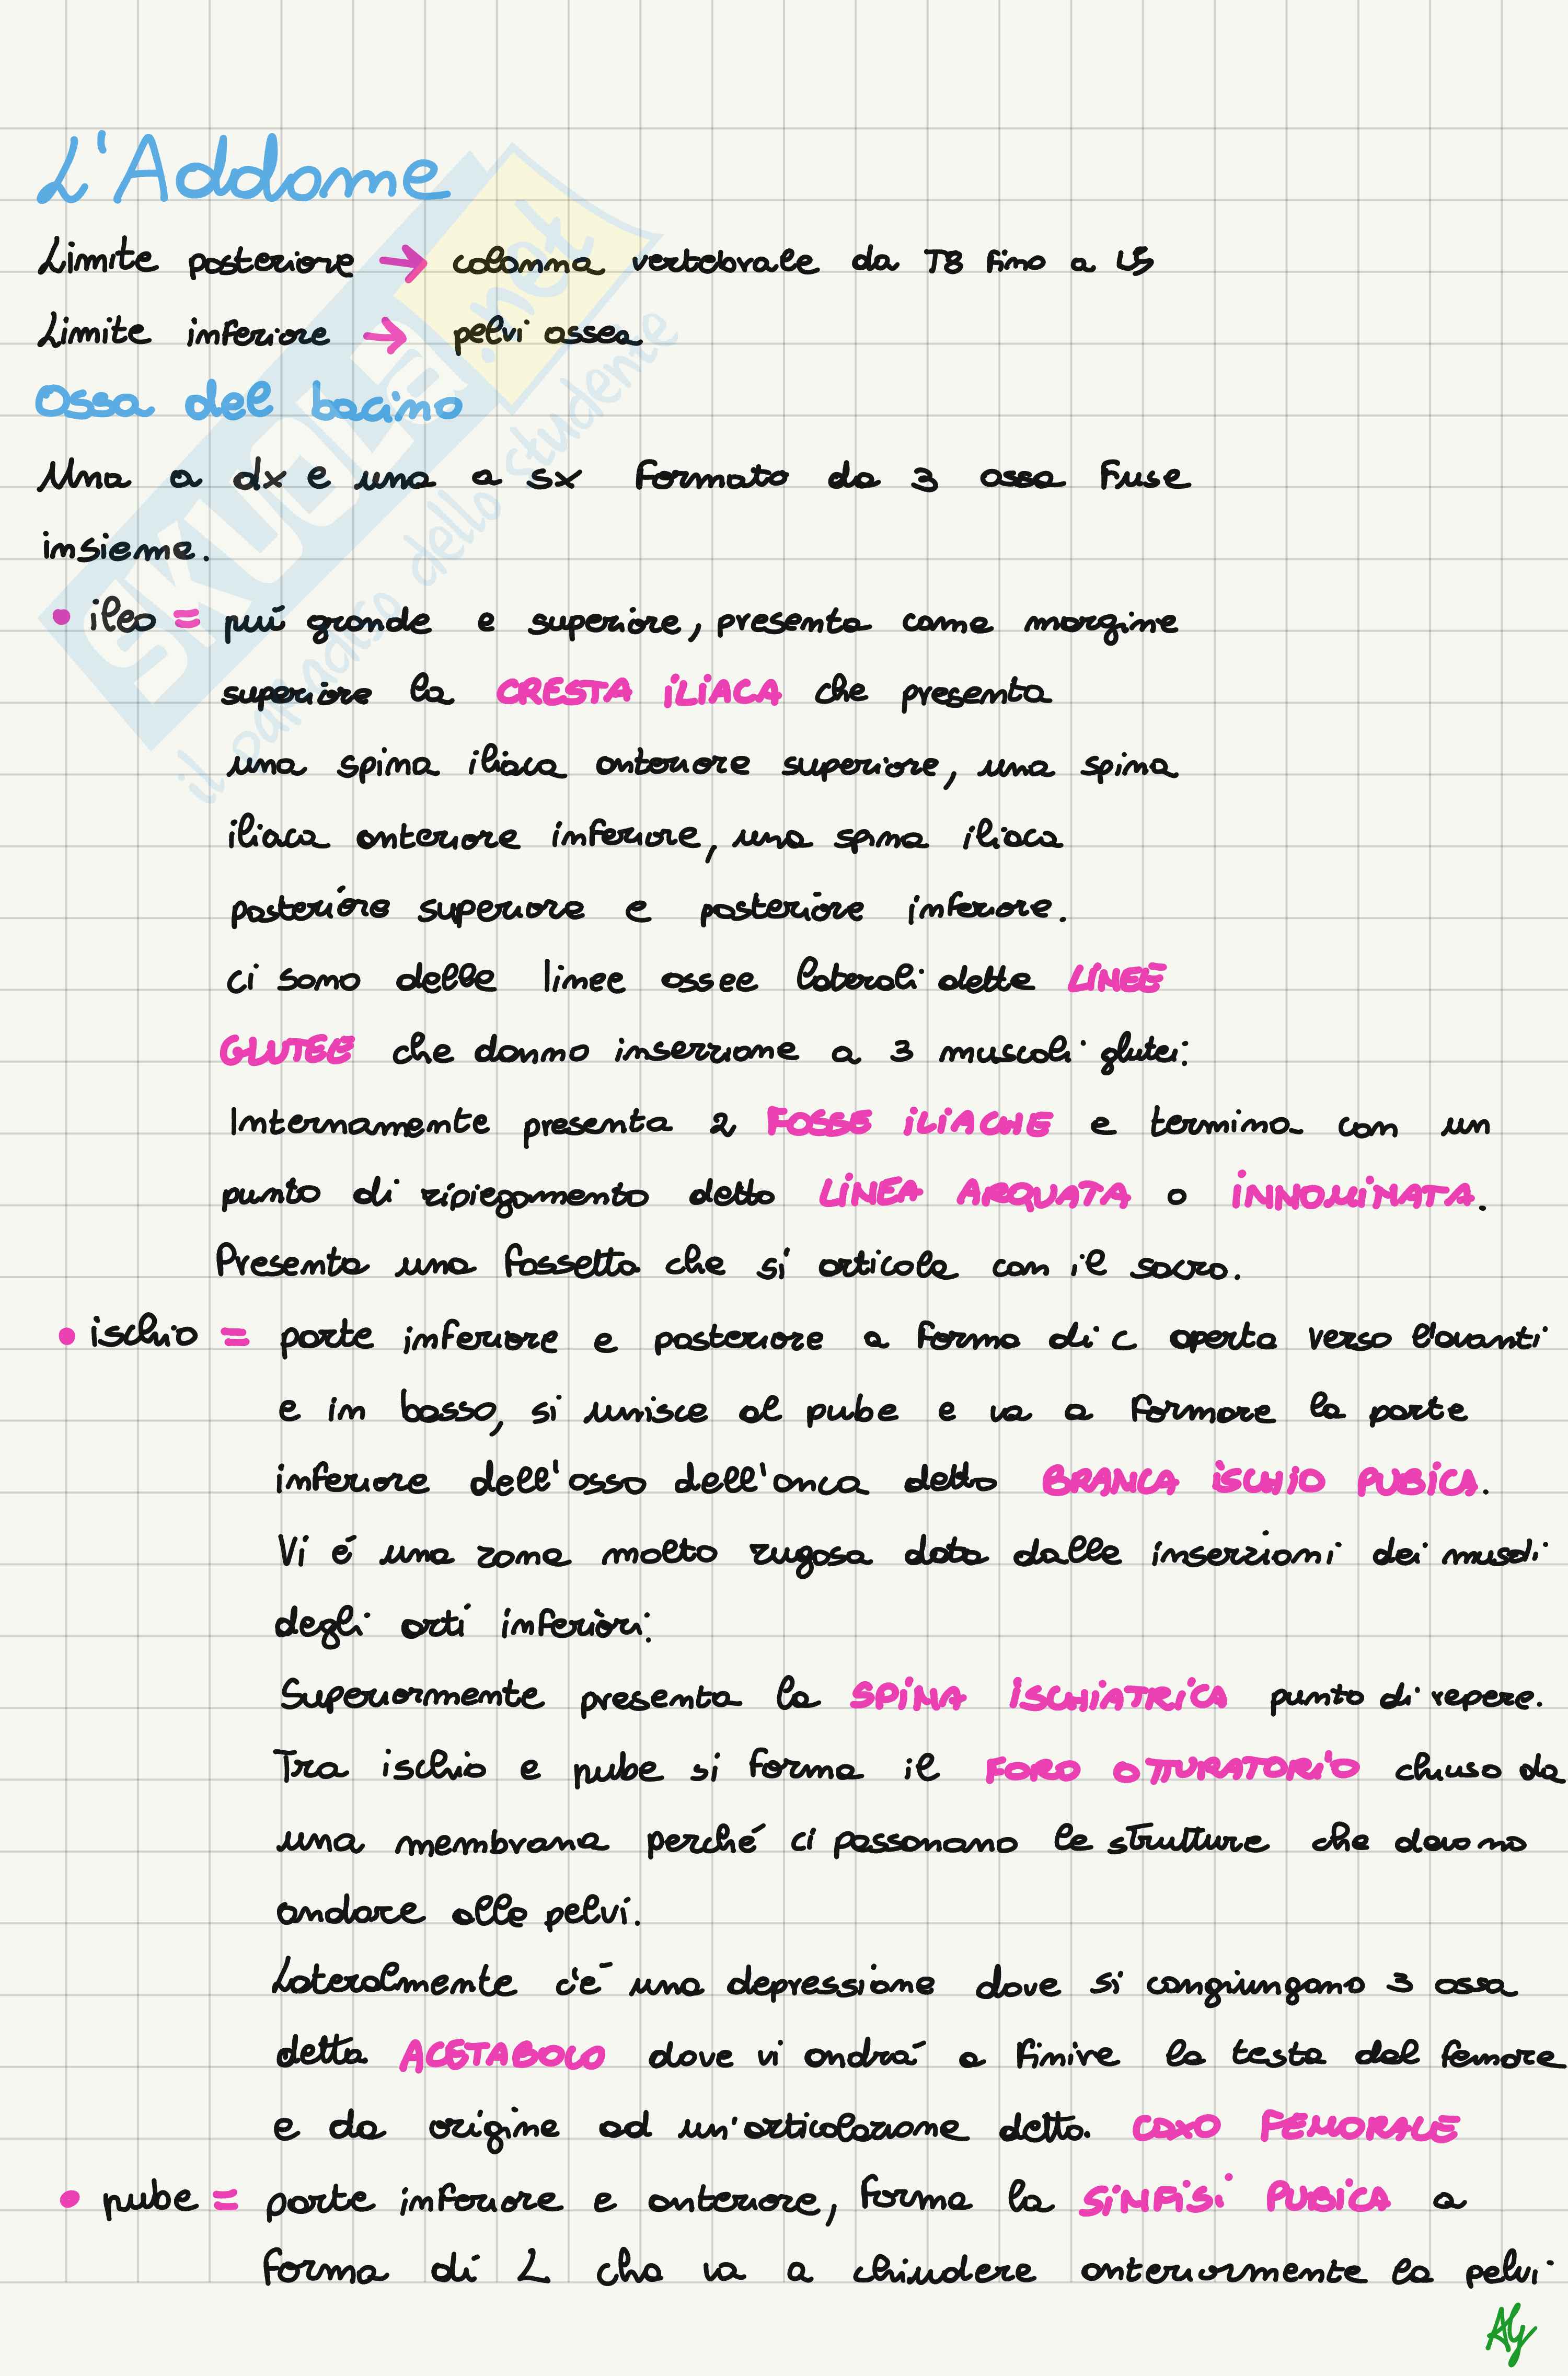 L'Addome
Limite posteriore → colonna vertebrale da T8 fino a L5
Limite inferiore → pelvi ossea
Ossa del bacino
Una a dx e una a sx formato da 3 ossa fuse
insieme.
• ileo = piuí grande e superiore, presenta come margine
superiore la CRESTA iLiACA che presenta
una spina iliaca anteriore superiore, una spina
iliaca anteriore inferiore, una spina iliaca
posteriore superiore e posteriore inferiore.
ci sono delle linee ossee laterali dette LINEE
GLUTEE che danno inserzione a 3 muscoli glutei.
Internamente presenta 2 FOSSE iLiACHE e termina con un
punto di ripiegamento detto LiNEA ARQUATA o iNNOMiNATA.
Presenta una fossetta che si articola con il sacro.
• ischio = parte inferiore e posteriore a forma di c aperta verso l'avanti
e in basso, si unisce al pube e va a formare la parte
inferiore dell'osso dell'anca detto BRANCA iSCHiO PUBiCA.
Vi é una zona molto rugosa data dalle inserzioni dei muscoli
degli arti inferiori.
Superiormente presenta la SPiNA iSCHIATRiCA punto di repere.
Tra ischio e pube si forma il FORO OTTURATORiO chiuso da
una membrana perché ci passonano le strutture che devono
andare alla pelvi.
Lateralmente c'é una depressione dove si congiungano 3 ossa
detta ACETABOLO dove vi andrá a finire la testa del femore
e da origine ad un'articolazione detta COXO FEMORALE
• pube = parte inferiore e anteriore, forma la SiNFiSi PUBiCA a
forma di L cha va a chiudere anteriormente la pelvi
Aly
SKUOLa.net
il paradiso dello studente